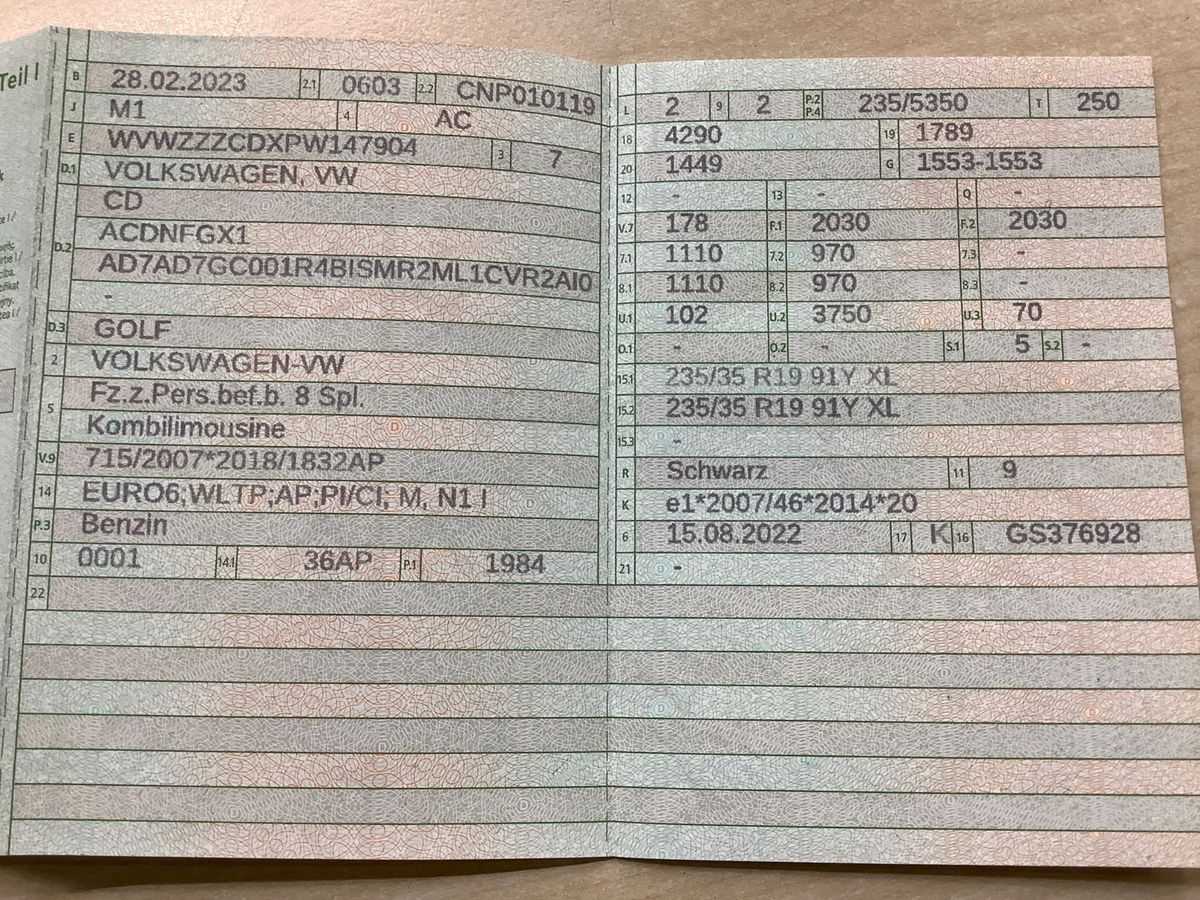 Teil I
B 28.02.2023 2.1 0603 2.2 CNP010119
J M1 4 AC
E WVWZZZCDXPW147904 3 7
D.1 VOLKSWAGEN, VW
CD
D.2 ACDNFGX1
AD7AD7GC001R4BISMR2ML1CVR2AI0
-
D.3 GOLF
2 VOLKSWAGEN-VW
5 Fz.z.Pers.bef.b. 8 Spl.
Kombilimousine
V.9 715/2007*2018/1832AP
14 EURO6;WLTP;AP;PI/CI; M, N1 I
P.3 Benzin
10 0001 14.1 36AP P.1 1984
22
L 2 9 2 P.2 P.4 235/5350 T 250
18 4290 19 1789
20 1449 G 1553-1553
12 - 13 - Q -
V.7 178 F.1 2030 F.2 2030
7.1 1110 7.2 970 7.3 -
8.1 1110 8.2 970 8.3 -
U.1 102 U.2 3750 U.3 70
O.1 - O.2 - S.1 5 S.2 -
15.1 235/35 R19 91Y XL
15.2 235/35 R19 91Y XL
15.3 -
R Schwarz 11 9
K e1*2007/46*2014*20
6 15.08.2022 17 K 16 GS376928
21 -